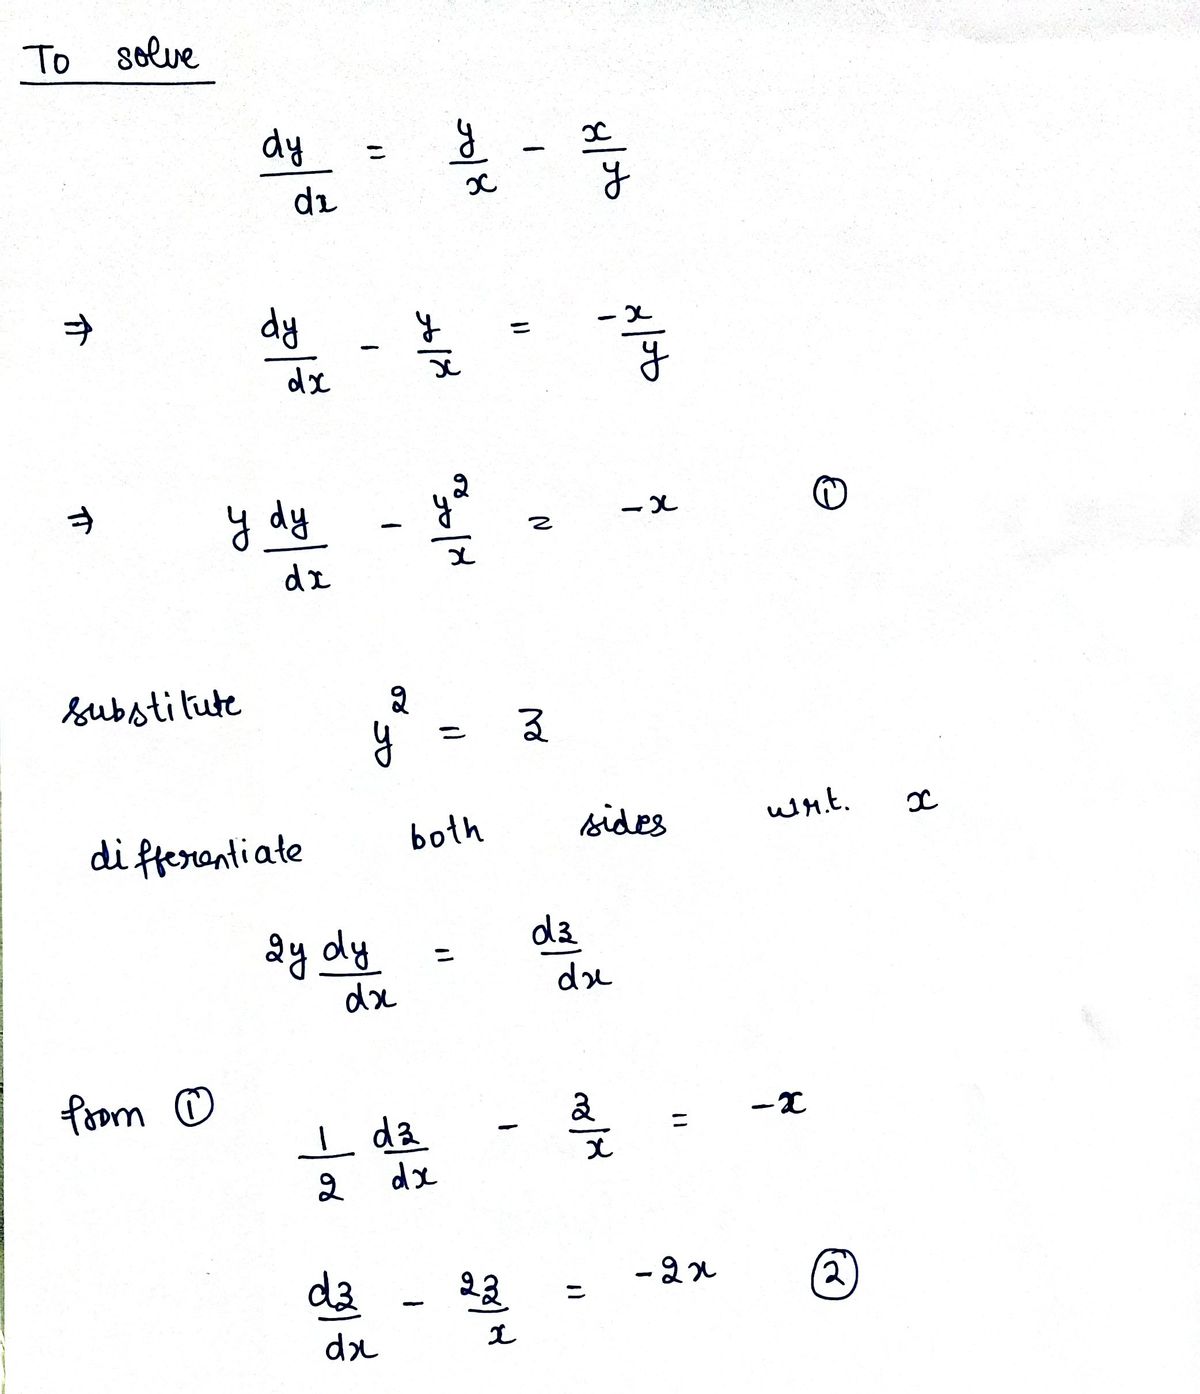 To solve
dy/dx = y/x - x/y
⇒ dy/dx - y/x = -x/y
⇒ y dy/dx - y²/x = -x ①
substitute y² = z
differentiate both sides w.r.t. x
2y dy/dx = dz/dx
from ① 1/2 dz/dx - z/x = -x
dz/dx - 2z/x = -2x ②